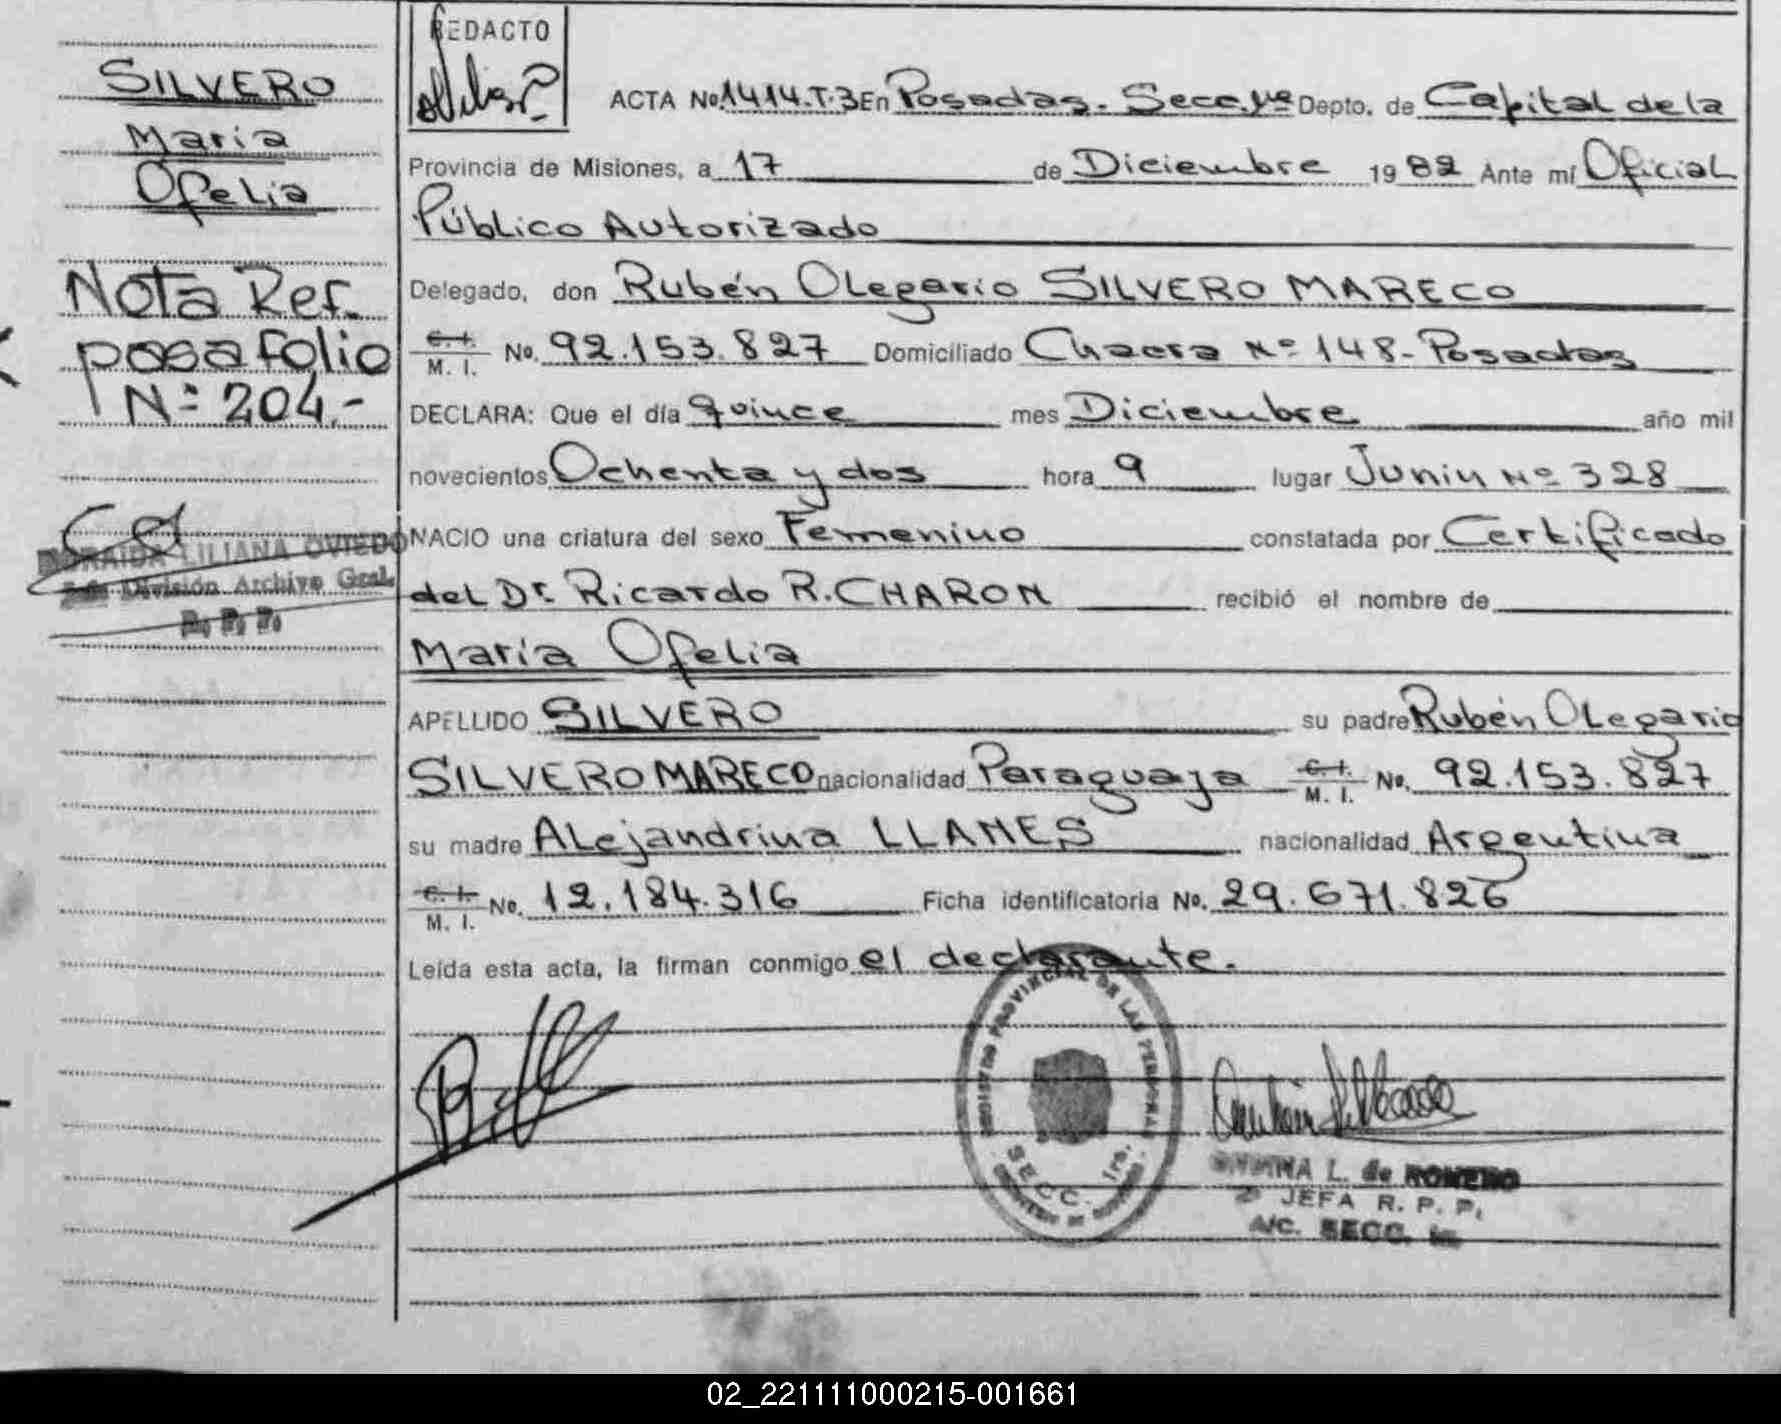 SILVERO
María
Ofelia
Nota Ref.
pasa folio
Nº 204.-
LILIANA OVIEDO
División Archivo Gral.
R. P. P.
REDACTO
ACTA No. 1414.T.3 En Posadas. Secc. 1ra Depto. de Capital de la
Provincia de Misiones, a 17 de Diciembre 1982 Ante mí Oficial
Público Autorizado
Delegado, don Rubén Olegario SILVERO MARECO
C. I. M. I. No. 92.153.827 Domiciliado Chacra Nº 148- Posadas
DECLARA: Que el día quince mes Diciembre año mil
novecientos Ochenta y dos hora 9 lugar Junin Nº 328
NACIO una criatura del sexo Femenino constatada por Certificado
del Dr. Ricardo R. CHARON recibió el nombre de
María Ofelia
APELLIDO SILVERO su padre Rubén Olegario
SILVERO MARECO nacionalidad Paraguaya C. I. M. I. No. 92.153.827
su madre Alejandrina LLAMES nacionalidad Argentina
C. I. M. I. No. 12.184.316 Ficha identificatoria No. 29.671.826
Leída esta acta, la firman conmigo el declarante.
PROVINCIAL DE LAS PERSONAS
SECC. 1ra.
L. de ROMERO
JEFA R. P. P.
A/C. SECC. 1a.
02_221111000215-001661